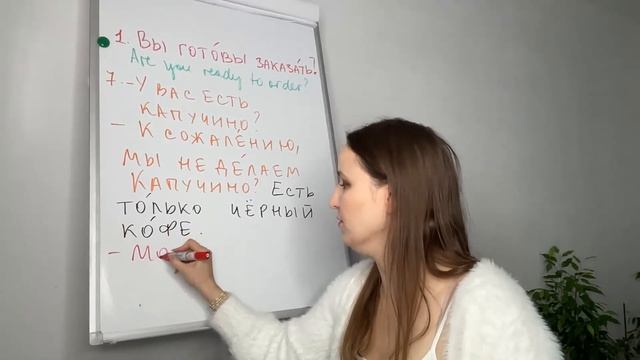 1. Вы гото́вы заказа́ть?
Are you ready to order?
7. – У вас есть
капучи́но?
– К сожале́нию,
мы не де́лаем
капучи́но? Есть
то́лько чёрный
ко́фе.
– Мо